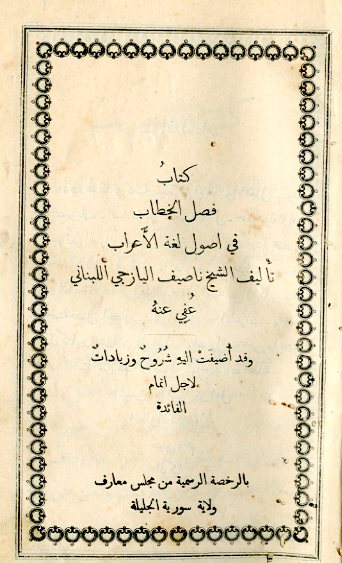 كتابُ
فصل الخطاب
في اصول لغة الأَعراب
تأليف الشيخ ناصيف اليازجي اللبناني
عُفِي عنهُ
وقد أُضيفَتْ اليهِ شُرُوحٌ وزياداتٌ
لاجل اتمام
الفائدة
بالرخصة الرسمية من مجلس معارف
ولاية سورية الجليلة